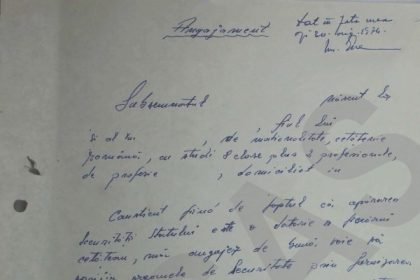 Angajament
dat în fața mea
azi 20. aug. 1974.
Subsemnatul născut la
, fiul lui
și al lui , de naționalitate, cetățenie
română, cu studii 8 clase plus 2 profesionale,
de profesie , domiciliat în
Conștient fiind de faptul că apărarea
securității Statului este o datorie a fiecărui
cetățean, mă angajez de bună voie să
sprijin organele de Securitate prin furnizarea